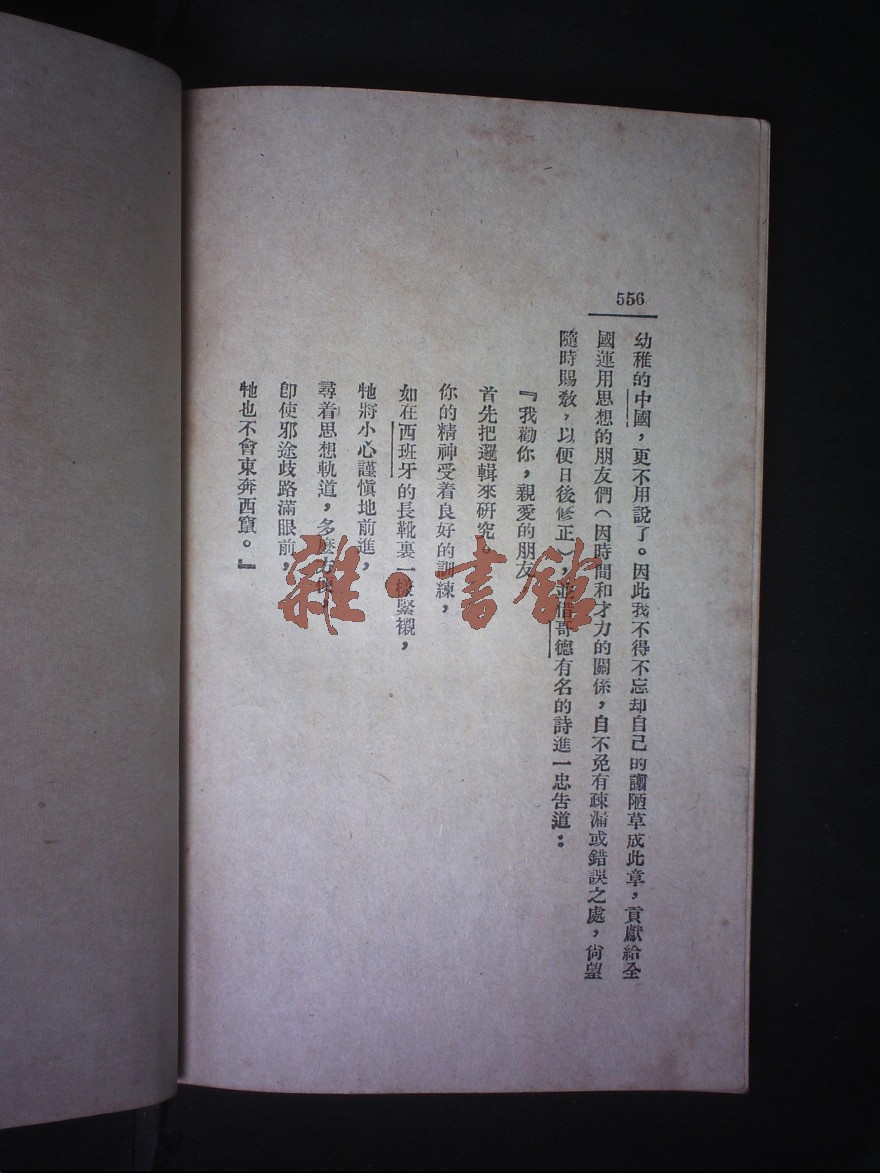 556
幼稚的中國，更不用說了。因此我不得不忘却自己的譾陋草成此章，貢獻給全
國運用思想的朋友們（因時間和才力的關係，自不免有疎漏或錯誤之處，尙望
隨時賜敎，以便日後修正），並借哥德有名的詩進一忠告道：
『我勸你，親愛的朋友
首先把邏輯來研究。
你的精神受着良好的訓練，
如在西班牙的長靴裏一樣緊襯，
牠將小心謹愼地前進，
尋着思想軌道，多麽方便，
卽使邪途歧路滿眼前，
牠也不會東奔西竄。』
雜·書館